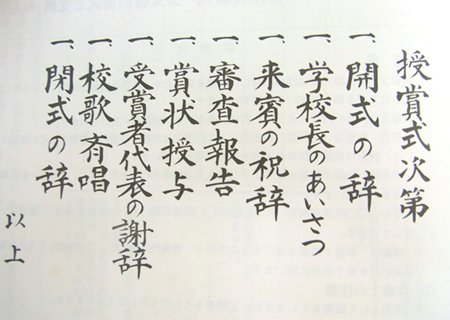 授賞式次第
一、開式の辞
一、学校長のあいさつ
一、来賓の祝辞
一、審査報告
一、賞状授与
一、受賞者代表の謝辞
一、校歌斉唱
一、閉式の辞
以上